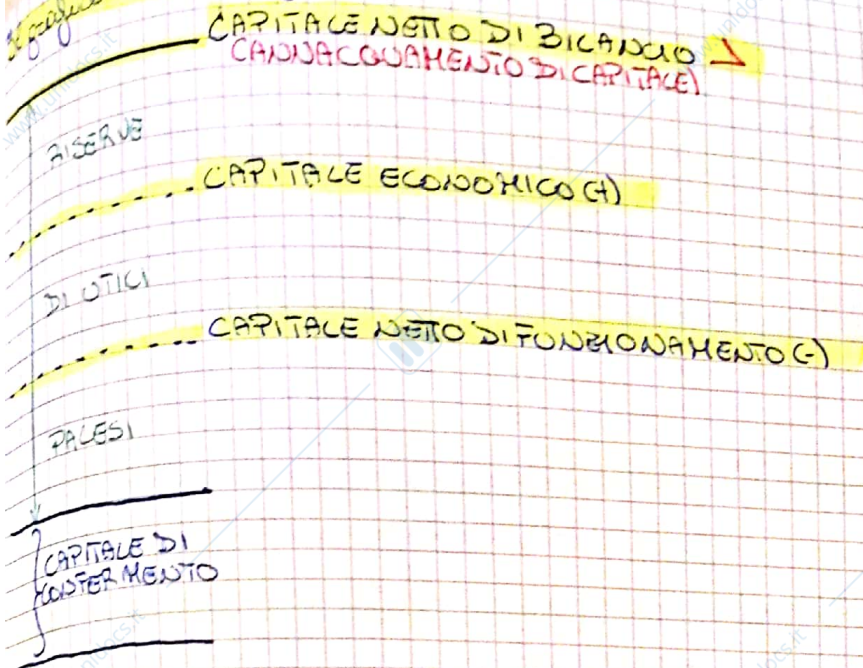 Il grafico
CAPITALE NETTO DI BILANCIO
(ANNACQUAMENTO DI CAPITALE)
RISERVE
CAPITALE ECONOMICO (+)
DI UTILI
CAPITALE NETTO DI FUNZIONAMENTO (-)
PALESI
CAPITALE DI
CONFERMENTO